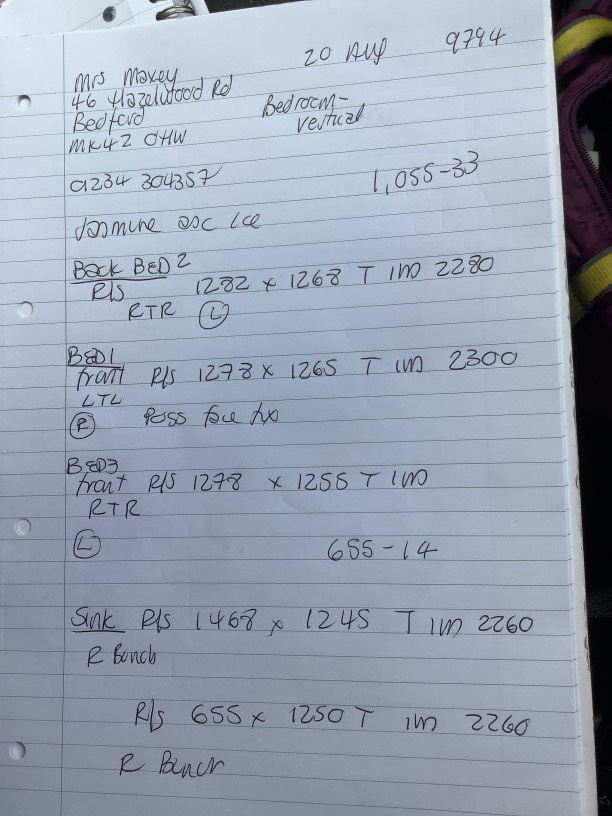 20 Aug 9794
Mrs Maxey
46 Hazelwood Rd
Bedford
MK42 0HW
Bedroom-
vertical
01234 304357
1,055-33
Jasmine
Back BED 2
R/S 1282 x 1268 T 1M 2280
RTR (L)
BED1
front R/S 1278 x 1265 T 1M 2300
LTL
(R) Poss face fix
BED3
front R/S 1278 x 1255 T 1M
RTR
(L)
655-14
Sink R/S 1468 x 1245 T 1M 2260
R Bunch
R/S 655 x 1250 T 1M 2260
R Bunch